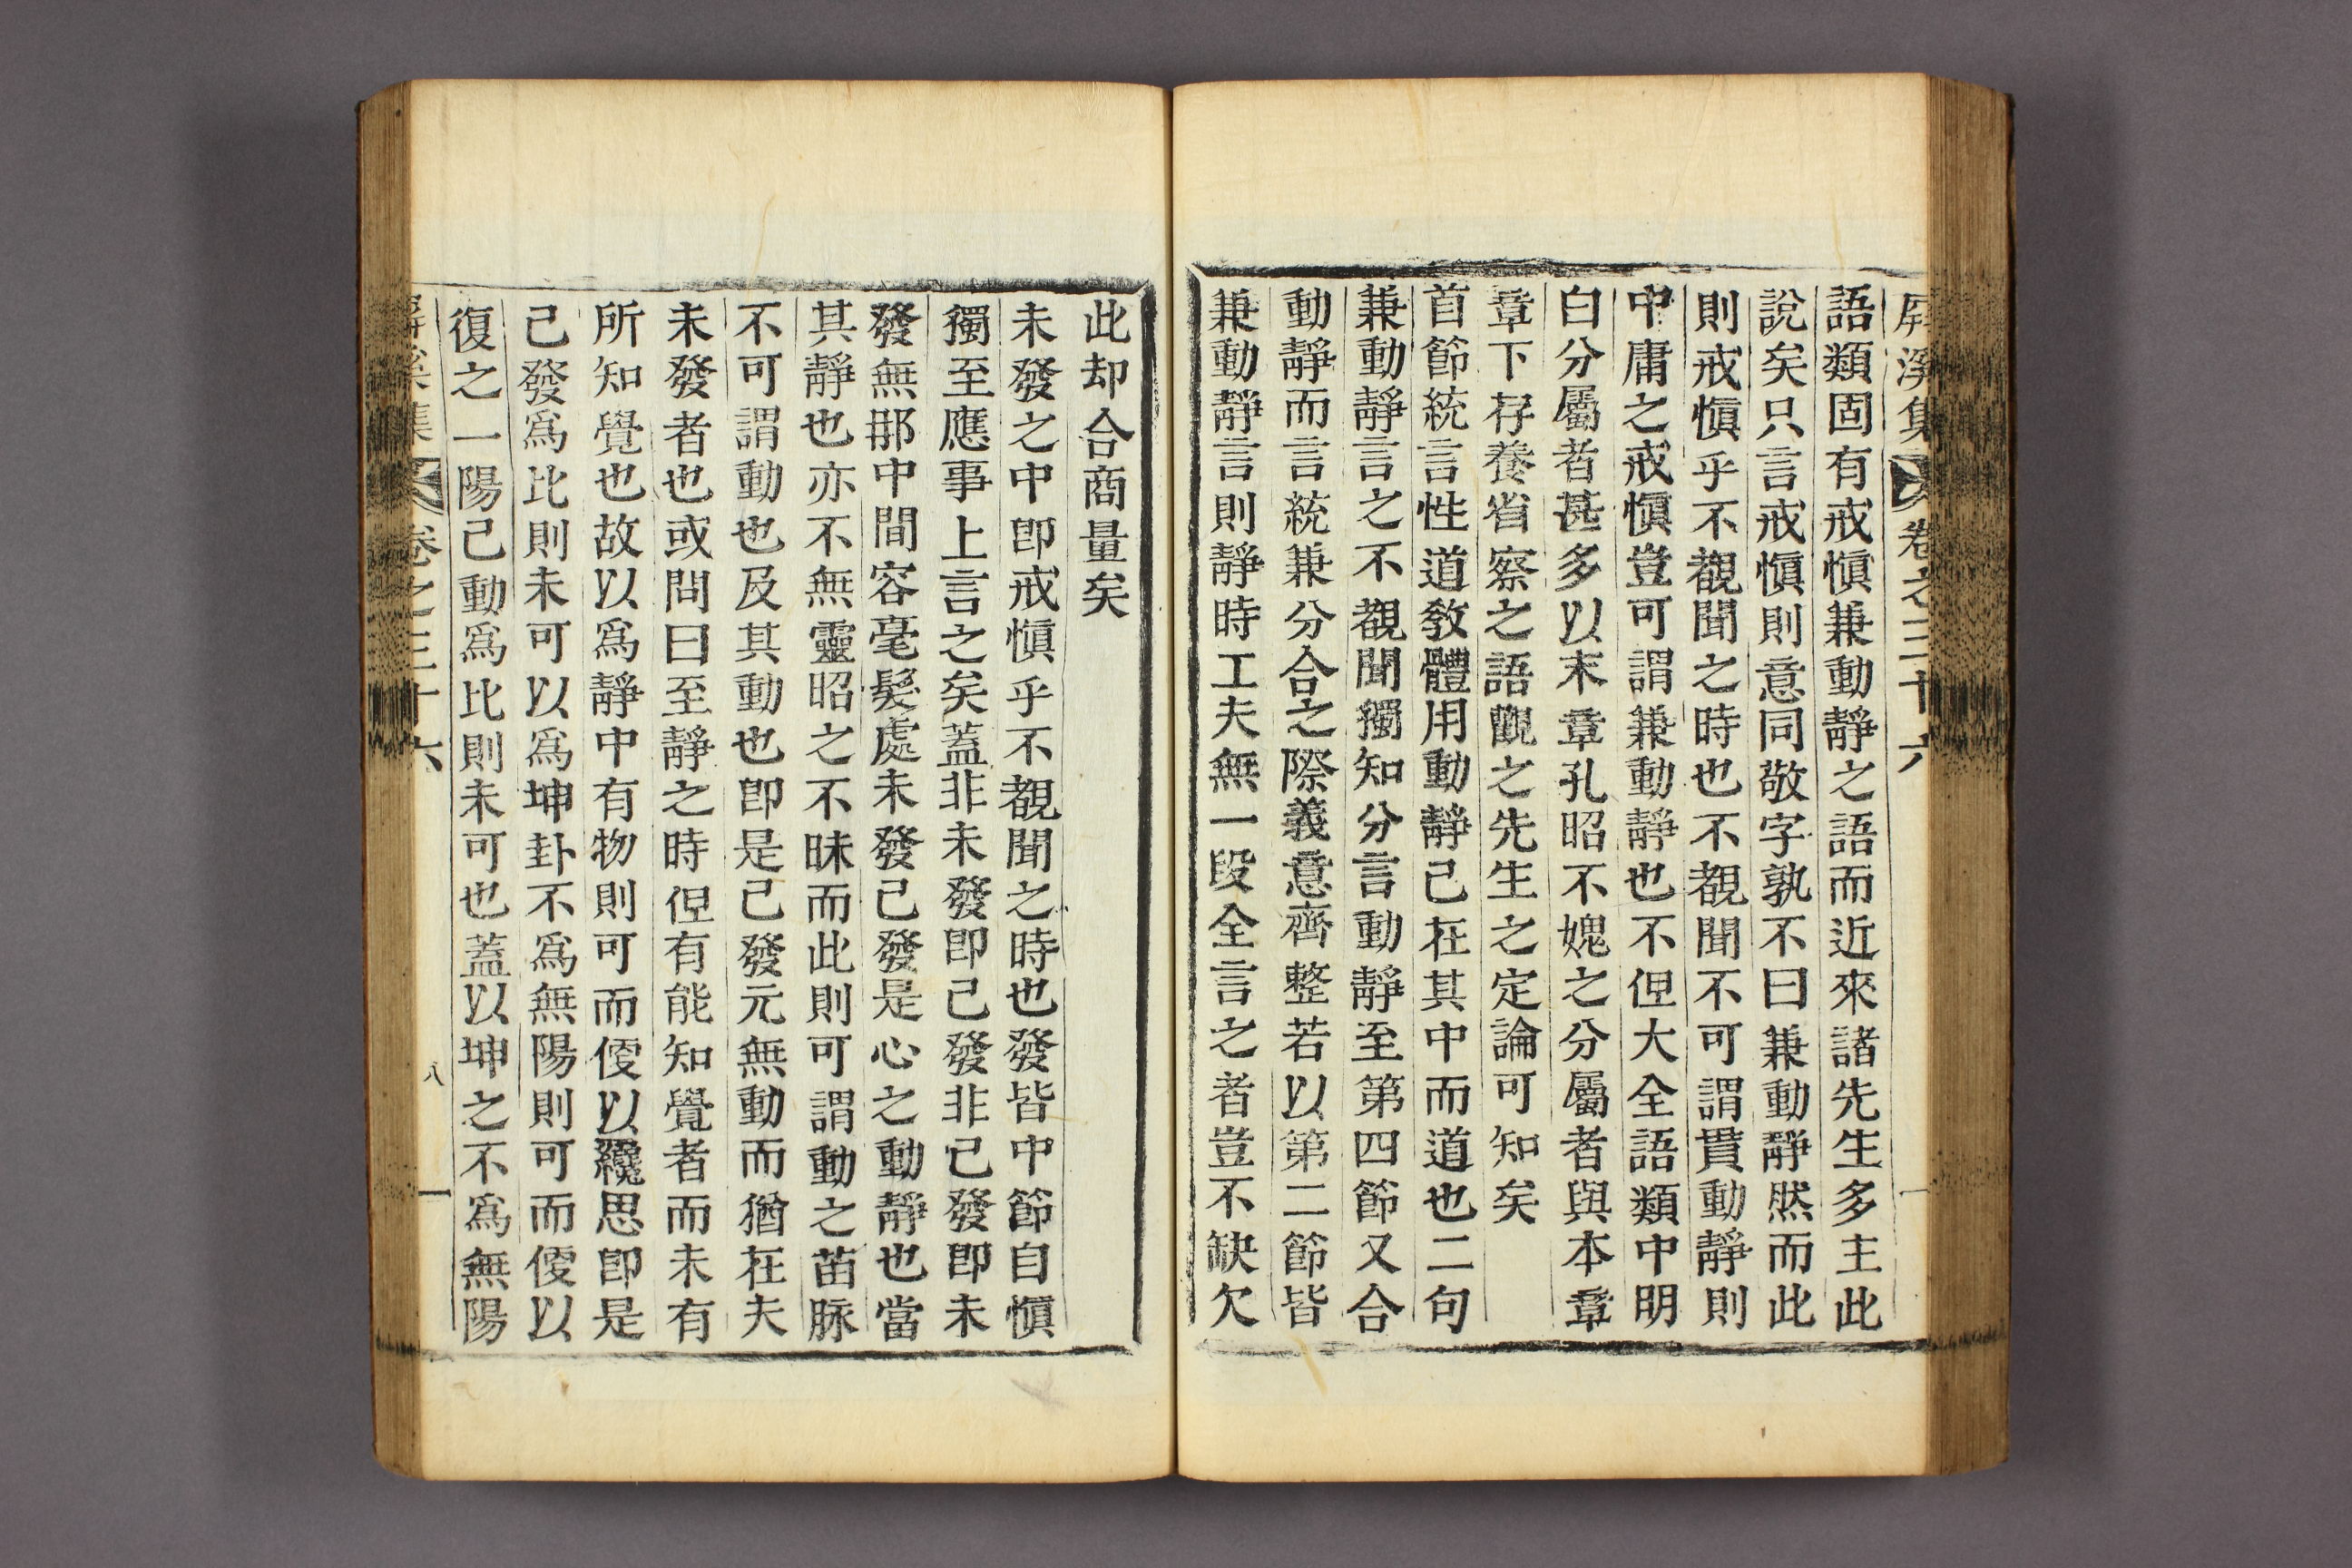 屛溪集 卷之三十六
語類固有戒愼兼動靜之語而近來諸先生多主此
說矣只言戒愼則意同敬字孰不曰兼動靜然而此
則戒愼乎不覩聞之時也不覩聞不可謂貫動靜則
中庸之戒愼豈可謂兼動靜也不但大全語類中明
白分屬者甚多以末章孔昭不媿之分屬者與本章
章下存養省察之語觀之先生之定論可知矣
首節統言性道敎體用動靜已在其中而道也二句
兼動靜言之不覩聞獨知分言動靜至第四節又合
動靜而言統兼分合之際義意齊整若以第二節皆
兼動靜言則靜時工夫無一段全言之者豈不缺欠
此却合商量矣
未發之中卽戒愼乎不覩聞之時也發皆中節自愼
獨至應事上言之矣蓋非未發卽已發非已發卽未
發無那中間容毫髮處未發已發是心之動靜也當
其靜也亦不無靈昭之不昧而此則可謂動之苗脉
不可謂動也及其動也卽是已發元無動而猶在夫
未發者也或問曰至靜之時但有能知覺者而未有
所知覺也故以爲靜中有物則可而便以纔思卽是
已發爲比則未可以爲坤卦不爲無陽則可而便以
復之一陽已動爲比則未可也蓋以坤之不爲無陽
屛溪集 卷之三十六 八